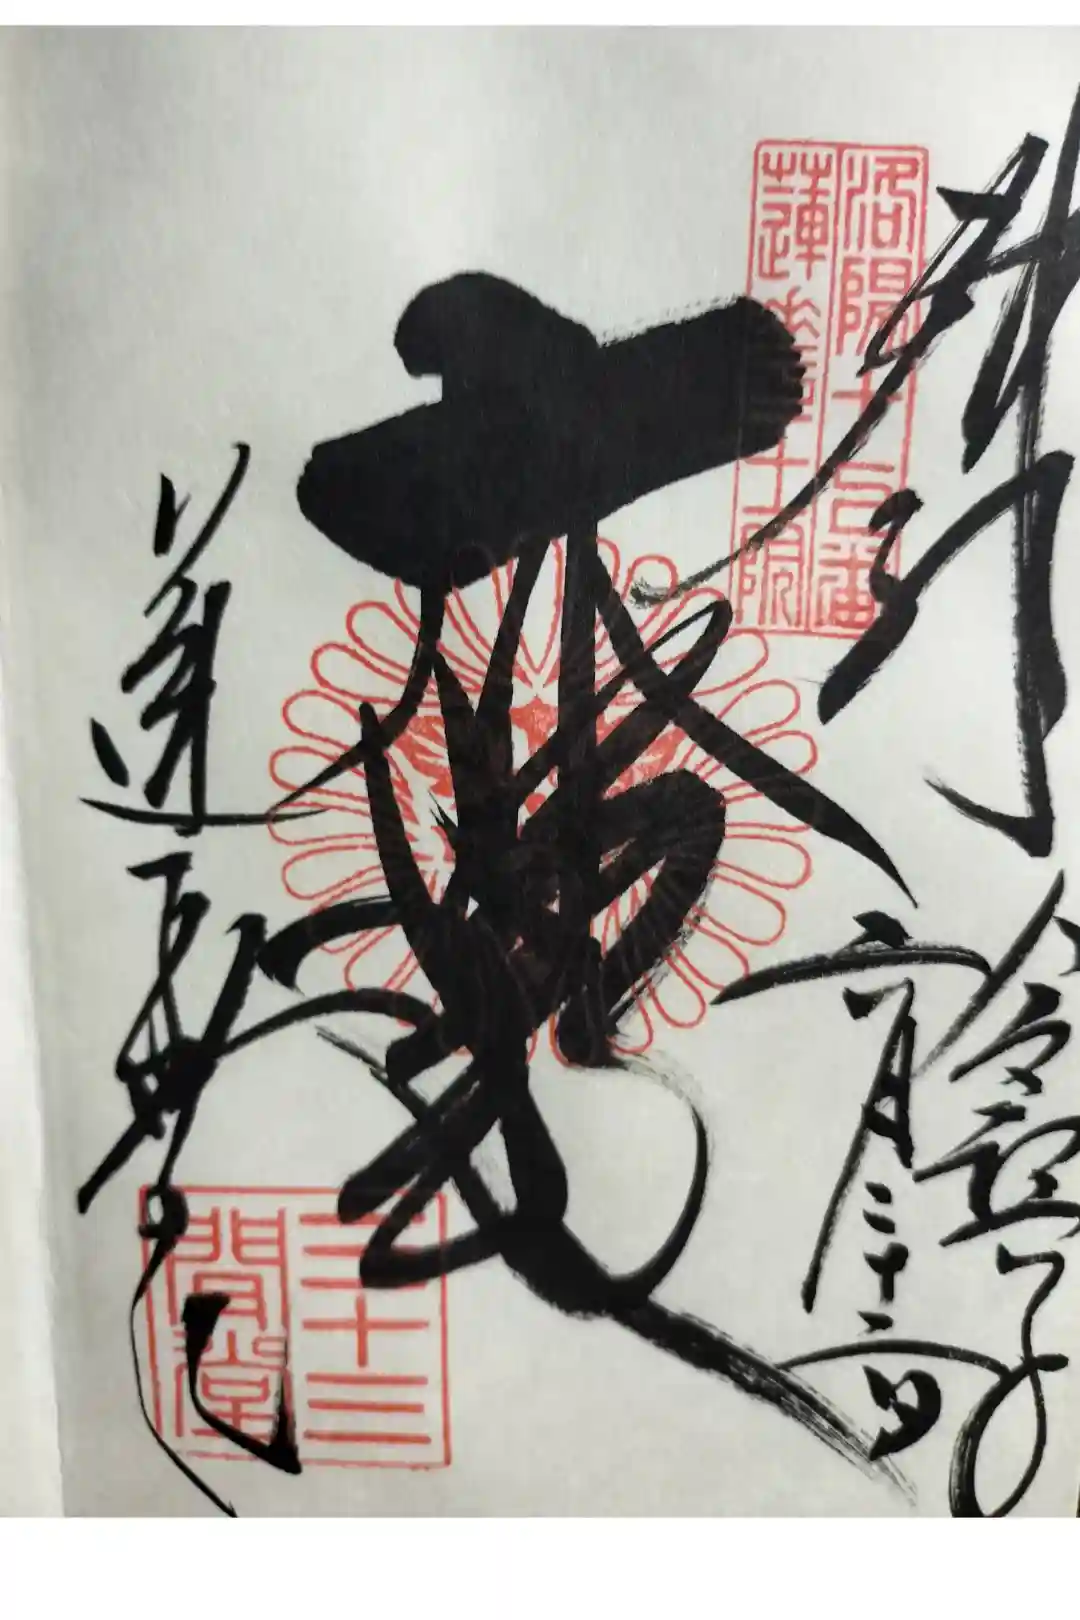 奉拝
六月二十二日
洛陽十七番
蓮華王院
大悲殿
蓮華王院
三十三
間堂